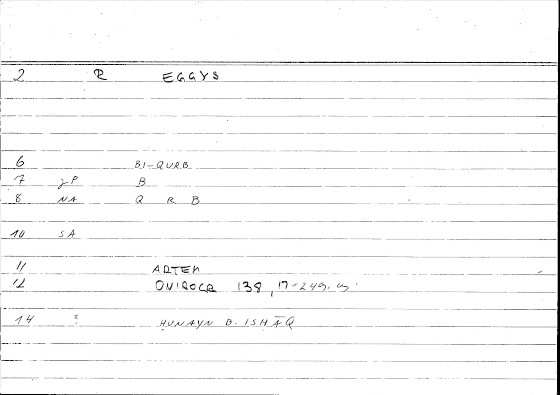 2 R EGGYS
6 BI-QURB
7 γP B
8 NA Q R B
10 SA
11 ARTEM
12 ONIROCR 138, 17-249.
14 ? HUNAYN B. ISHĀQ